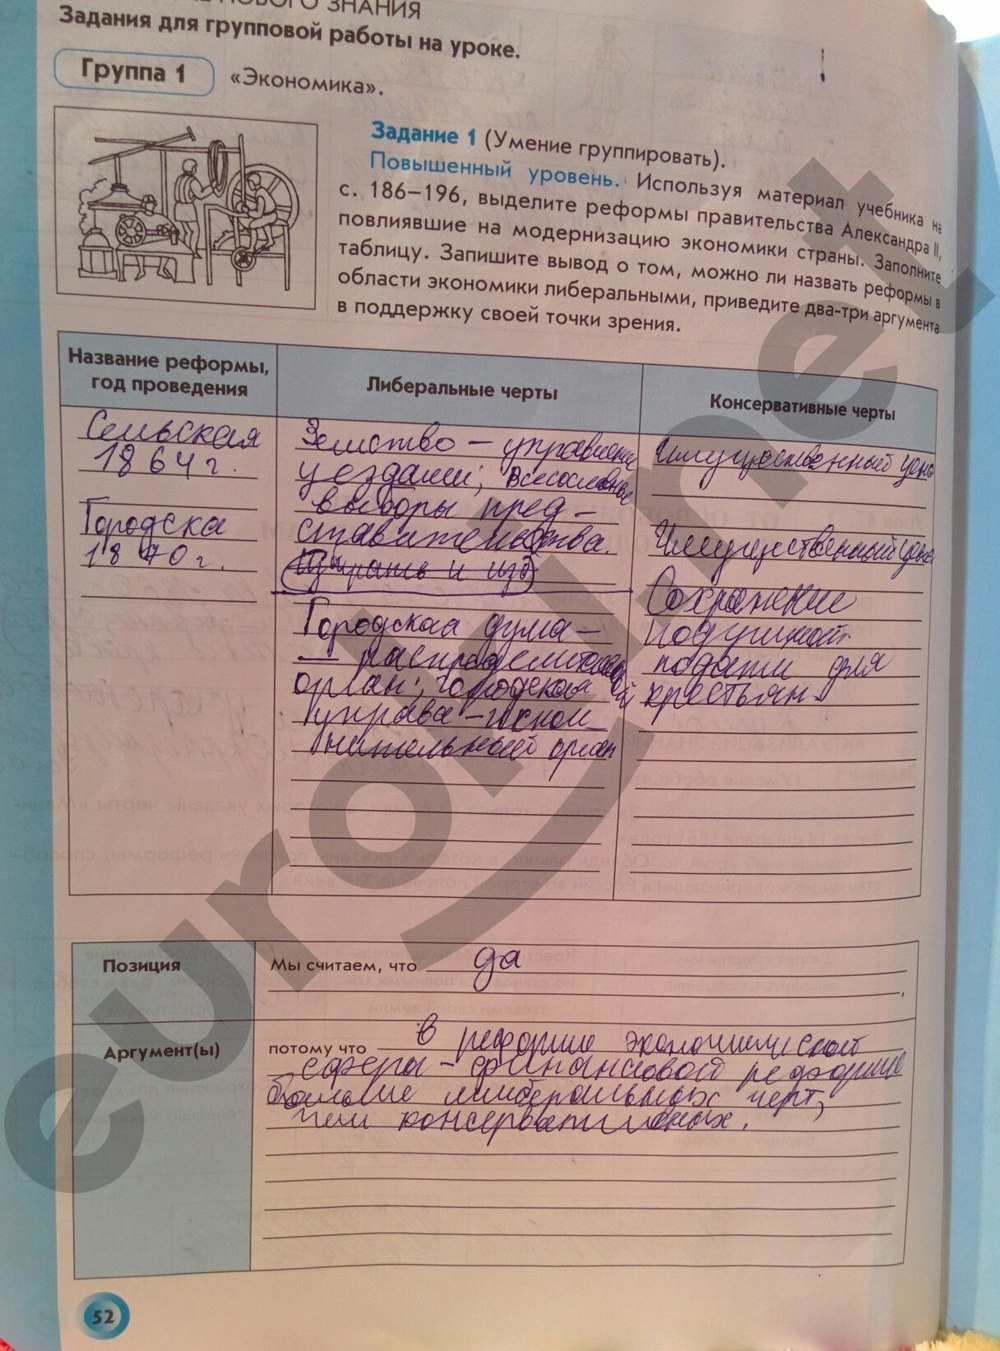 НОВОГО ЗНАНИЯ
Задания для групповой работы на уроке.
Группа 1
«Экономика».
Задание 1 (Умение группировать).
Повышенный уровень. Используя материал учебника на
с. 186–196, выделите реформы правительства Александра II,
повлиявшие на модернизацию экономики страны. Заполните
таблицу. Запишите вывод о том, можно ли назвать реформы в
области экономики либеральными, приведите два-три аргумента
в поддержку своей точки зрения.
Название реформы,
год проведения
Либеральные черты
Консервативные черты
Сельская
1864 г.
Городска
1870 г.
Земство – управление
уездами; Всесословные
выборы пред-
ставительства.
Городская дума –
– распределительный
орган; городская
управа –
нительный орган
Имущественный ценз
Имущественный ценз
Сохранение
подушной
подати для
крестьян
Позиция
Мы считаем, что да
Аргумент(ы)
потому что в реформе экономической
сферы – финансовой реформе
больше либеральных черт,
чем консервативных.
52
euroki.net